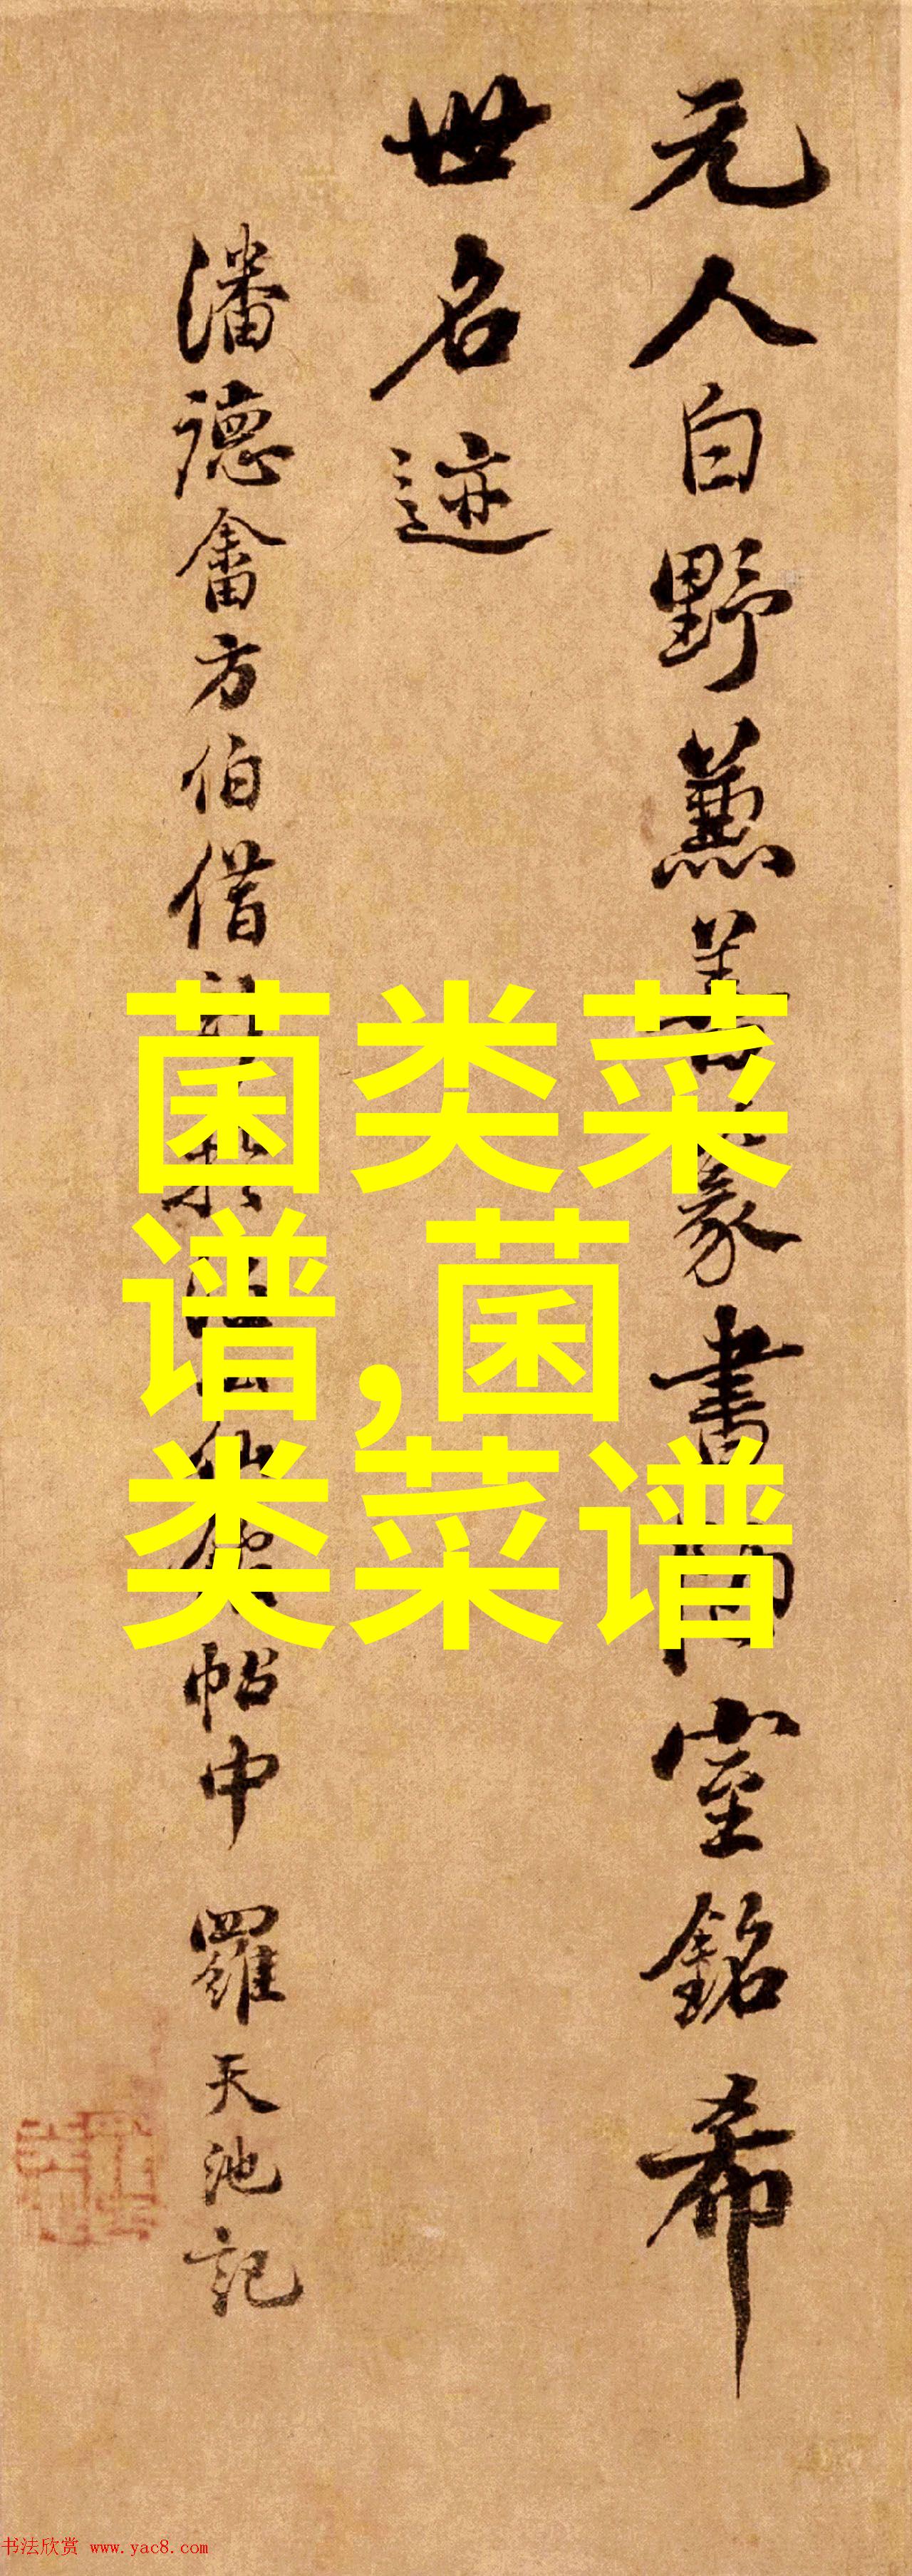 元人白野兼善篆書陋室銘希
世名迹
潘德畬方伯借
帖中 羅天池記
菌类菜
谱,菌
类菜谱
书法欣赏 www.yac8.com